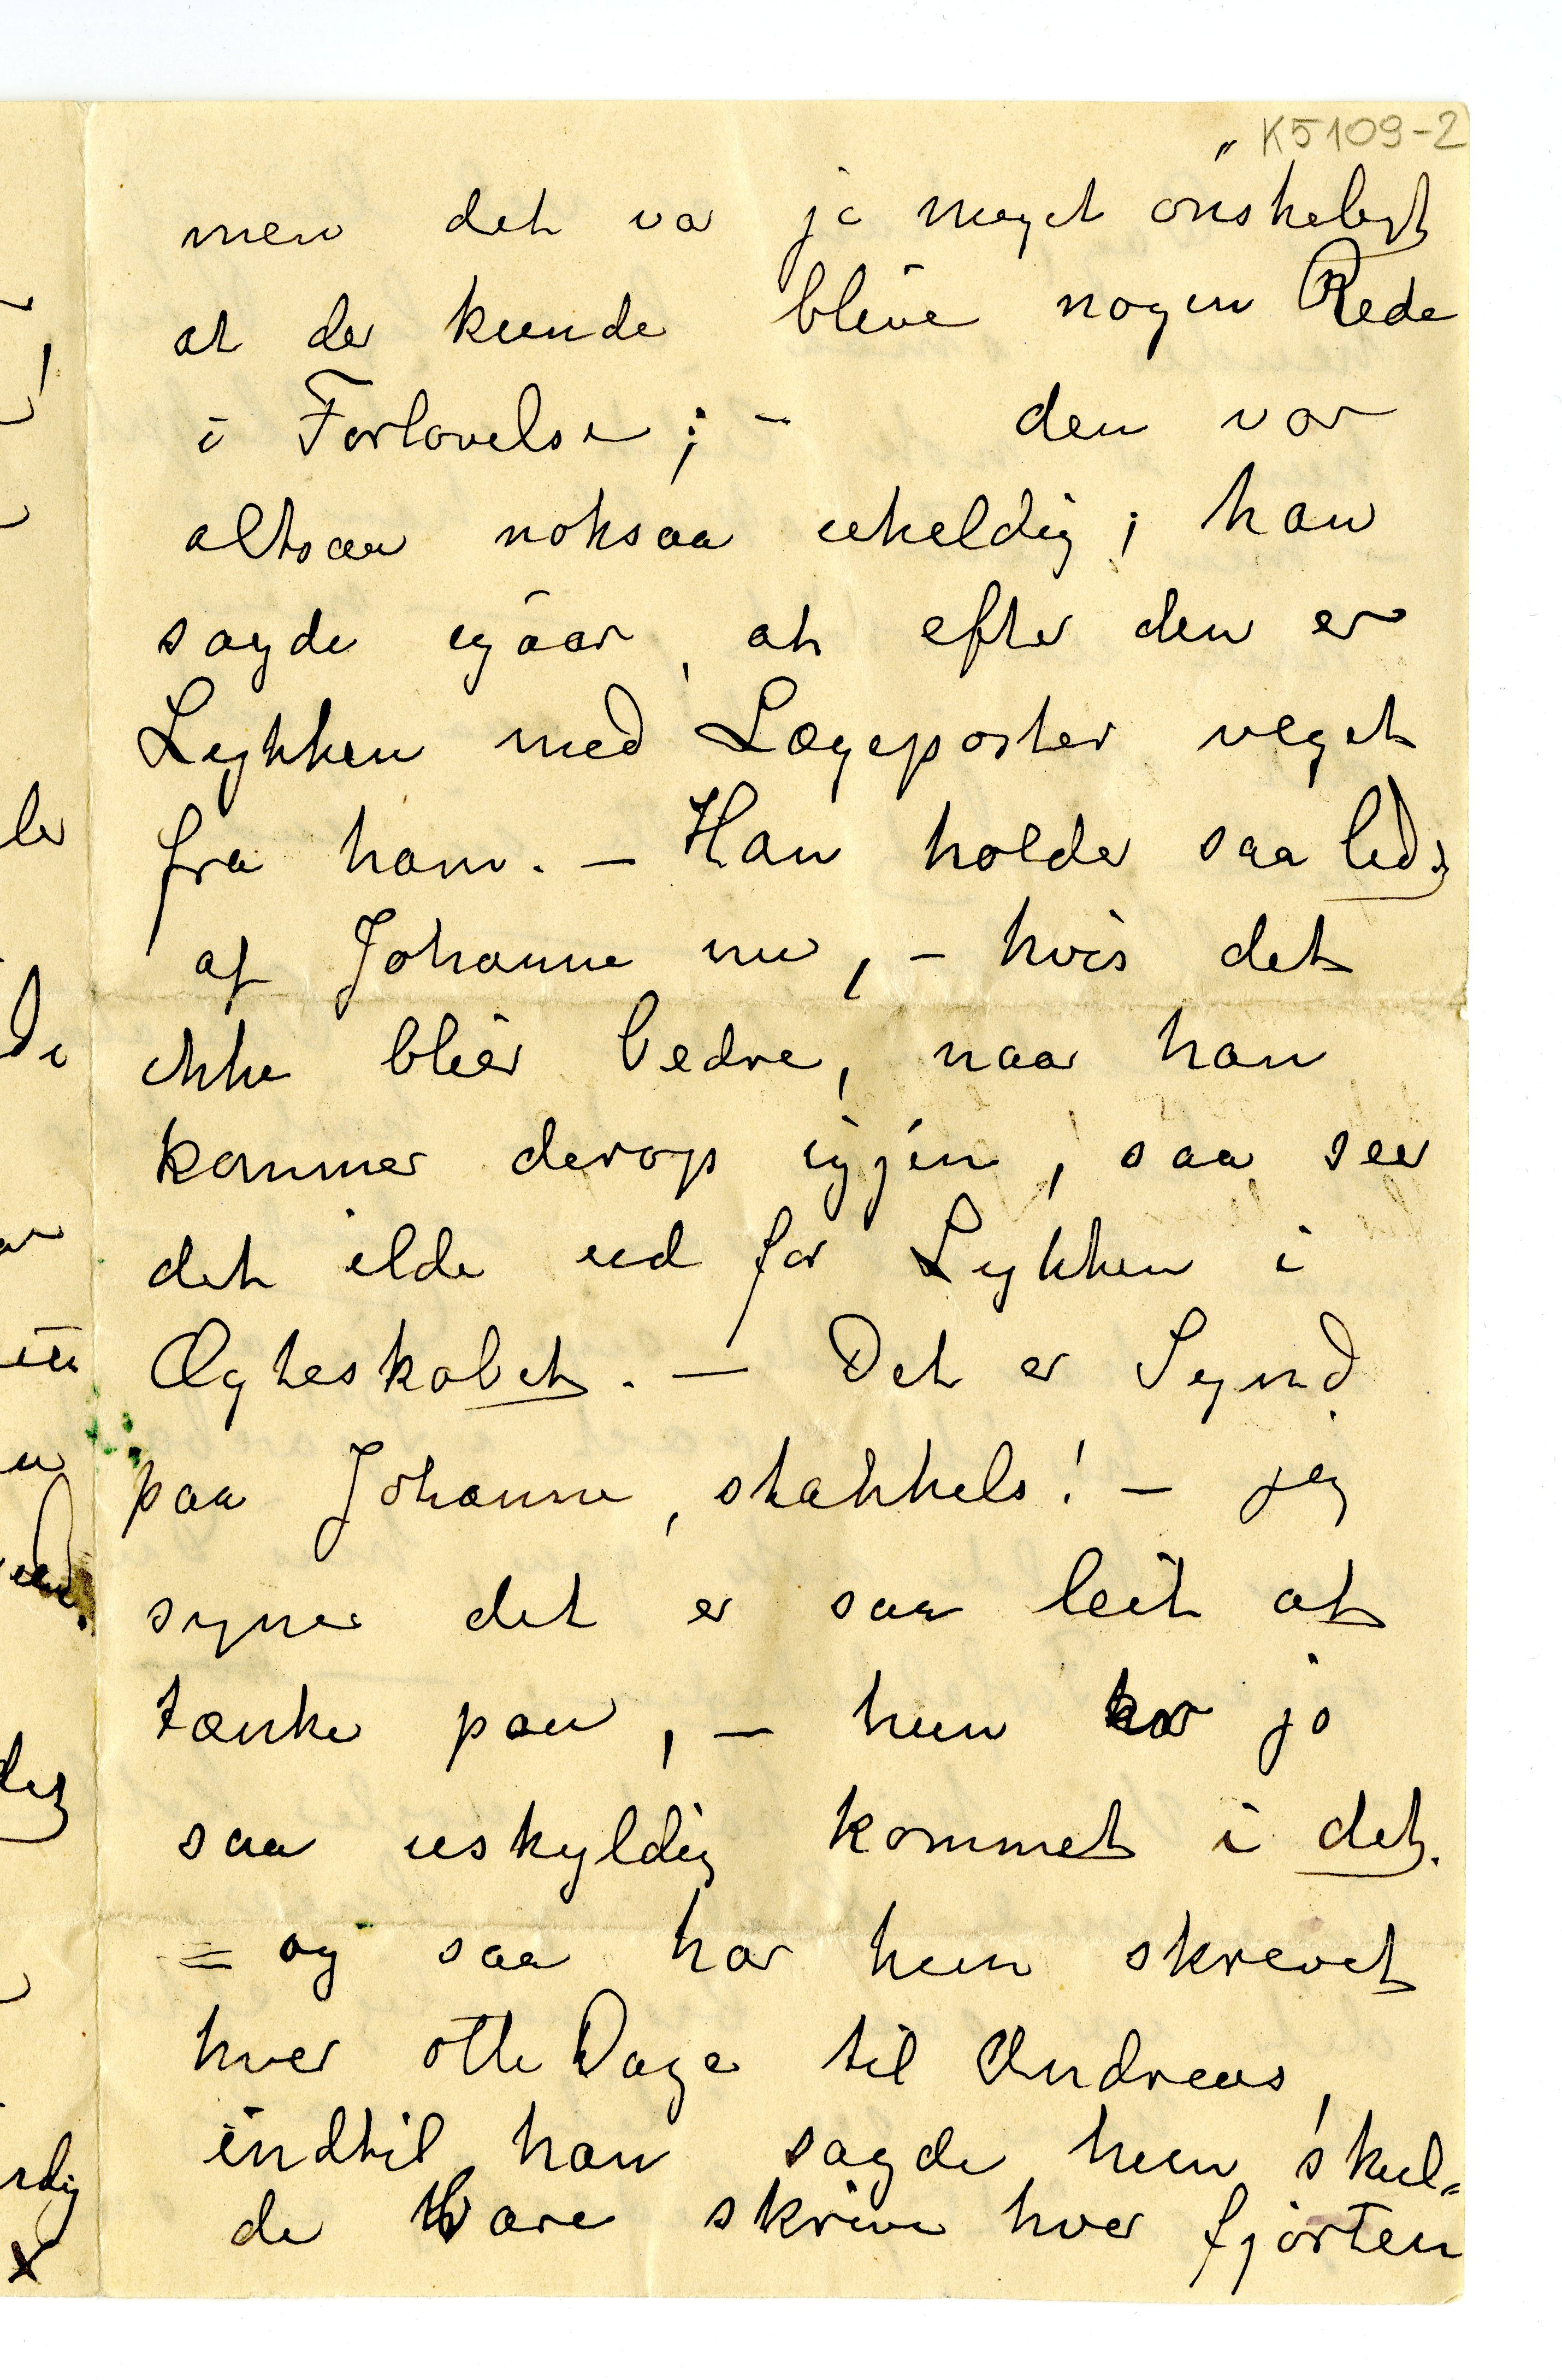 K5109-2
men det var ja meget ønskeligt
at der kunde blive nogen Rede
i Forlovelse; - den var
altsaa noksaa uheldig; han
sagde igaar, at efter den er
Lykken med Lægeposter veget
fra ham. — Han holder saa lidt
af Johanne nu, - hvis det
ikke blier bedre, naar han
kommer derop igjen, saa seer
det ilde ud for Lykken i
Ægteskabet. — Det er Synd
paa Johanne, stakkels! — jeg
synes det er saa leit at
tænke paa, — hun har jo
saa uskyldig kommet i det.
= og saa har hun skrevet
hver otte Dage til Andreas,
indtil han sagde, hun skul=
de bare skrive hver fjorten